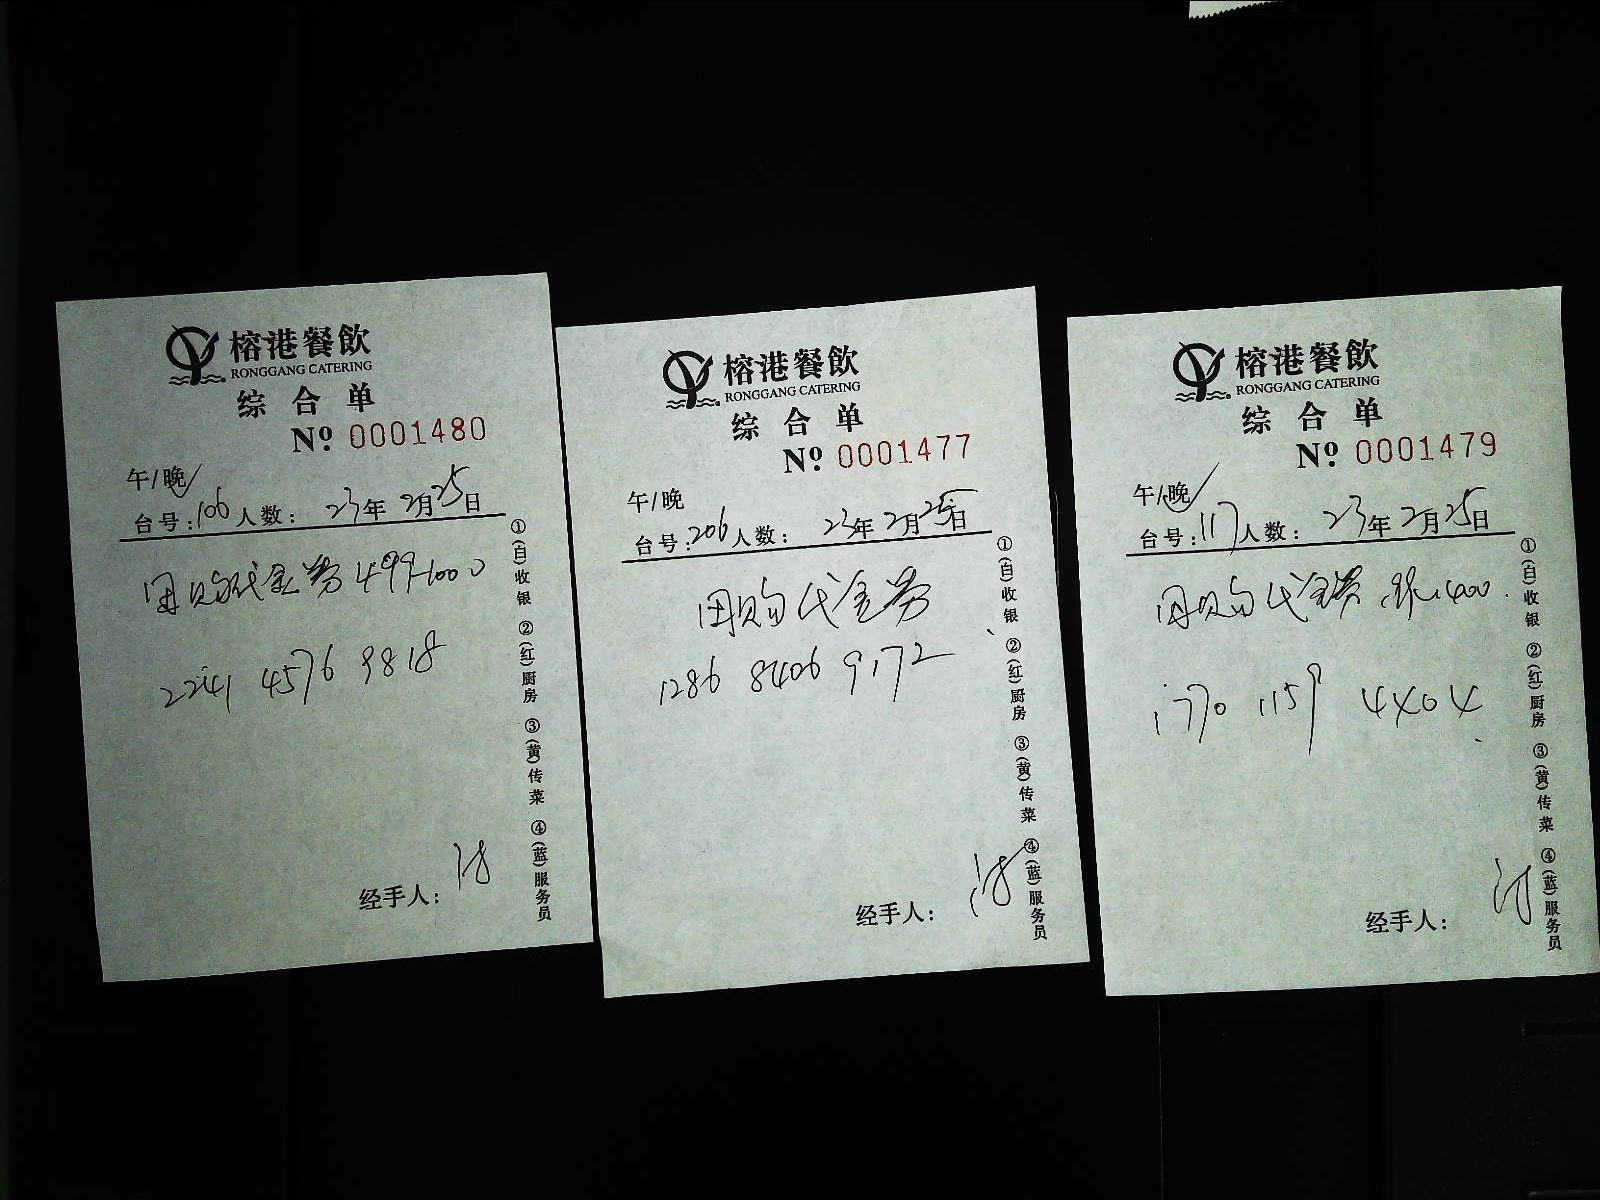 榕港餐飲
RONGGANG CATERING
综合单
Nº 0001480
午/晚
台号:106人数: 23年2月25日
团购代金券 499-1000
2241 4576 9818
经手人:
①(白)收银 ②(红)厨房 ③(黄)传菜 ④(蓝)服务员
榕港餐飲
RONGGANG CATERING
综合单
Nº 0001477
午/晚
台号:206人数: 23年2月25日
团购代金券
1286 8406 9172
经手人:
①(白)收银 ②(红)厨房 ③(黄)传菜 ④(蓝)服务员
榕港餐飲
RONGGANG CATERING
综合单
Nº 0001479
午/晚
台号:117人数: 23年2月25日
团购代金券 400
1770 1159 4404
经手人:
①(白)收银 ②(红)厨房 ③(黄)传菜 ④(蓝)服务员